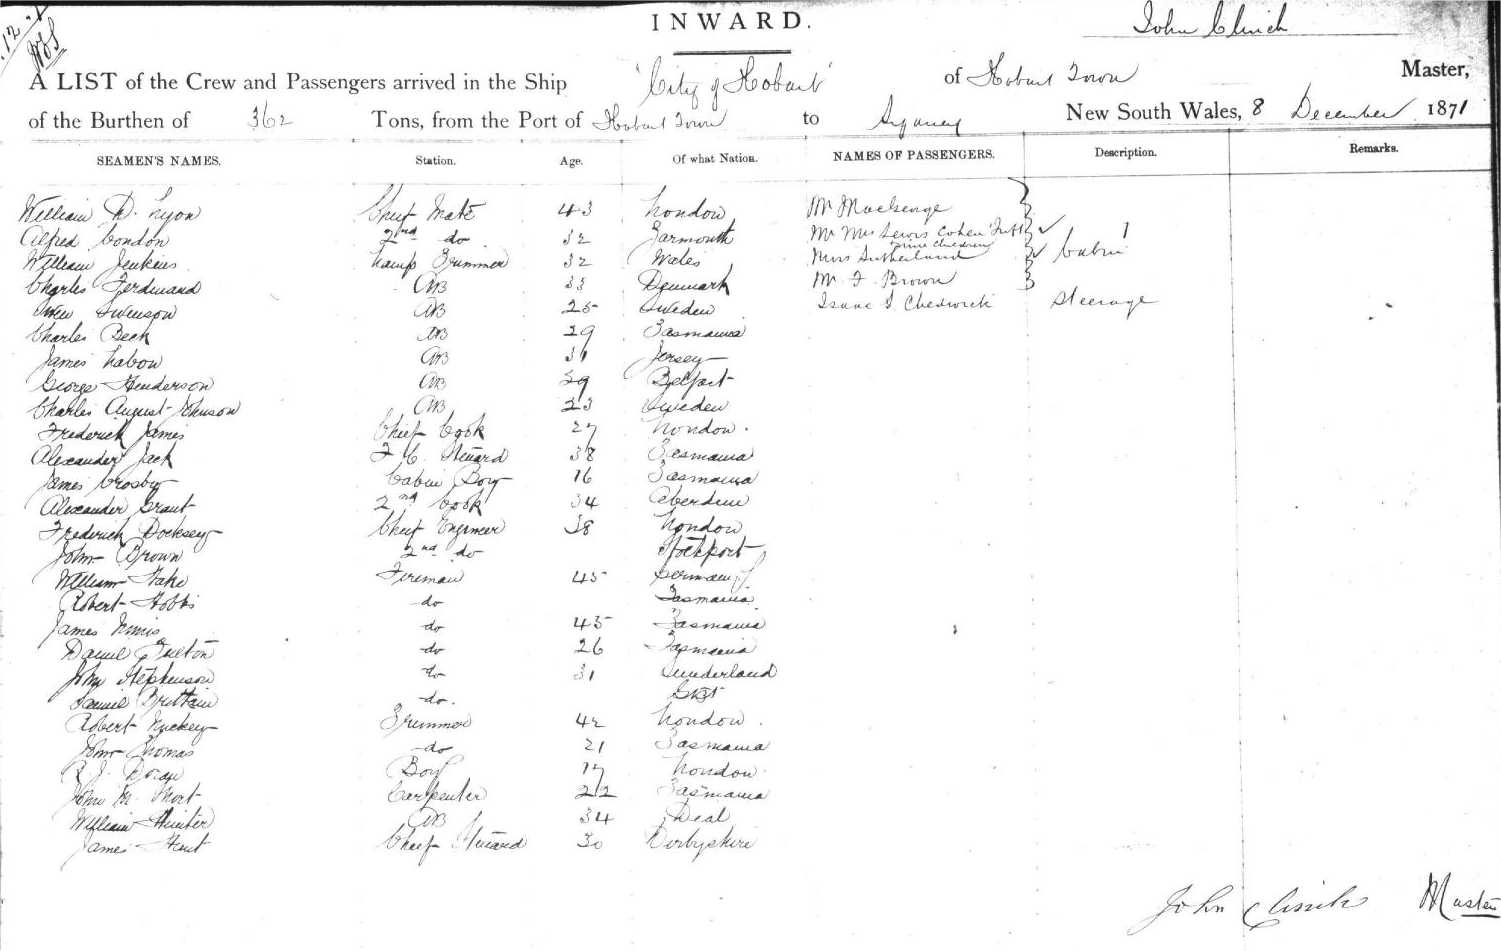 INWARD.
John Clinch
A LIST of the Crew and Passengers arrived in the Ship 'City of Hobart' of Hobart Town Master,
of the Burthen of 362 Tons, from the Port of Hobart Town to Sydney New South Wales, 8 December 1871
SEAMEN'S NAMES. Station. Age. Of what Nation. NAMES OF PASSENGERS. Description. Remarks.
William D. Lyon Chief Mate 43 London Mr Mackenzie
Alfred Condon 2nd do 32 Yarmouth Mr Mrs Lewis Cohen
nine children
William Jenkins Lamp Trimmer 32 Wales Miss Sutherland Cabin
Charles Ferdinand AB 33 Denmark Mr F. Brown
Swenson AB 25 Sweden Isaac Cheswick Steerage
Charles Beck AB 29 Tasmania
James Labon AB 31 Jersey
George Henderson AB 39 Belfast
Charles August Johnson AB 23 Sweden
Frederick James Chief Cook 27 London.
Alexander Jack F C Steward 38 Tasmania
James Crosby Cabin Boy 16 Tasmania
Alexander Grant 2nd Cook 34 Aberdeen
Frederick Docksey Chief Engineer 38 London
John Brown 2nd do Stockport
William Hake Fireman 45 Germany
Robert Hobbs do Tasmania
James do 45 Tasmania
Daniel Fulton do 26 Tasmania
John Stephenson do 31 Sunderland
Samuel Brittain do.
Robert Trimmer 42 London.
John Thomas do 21 Tasmania
Boy 17 London
John M. Short Carpenter 22 Tasmania
William Hunter AB 34 Deal
James Hunt Chief Steward 30 Derbyshire
John Clinch Master